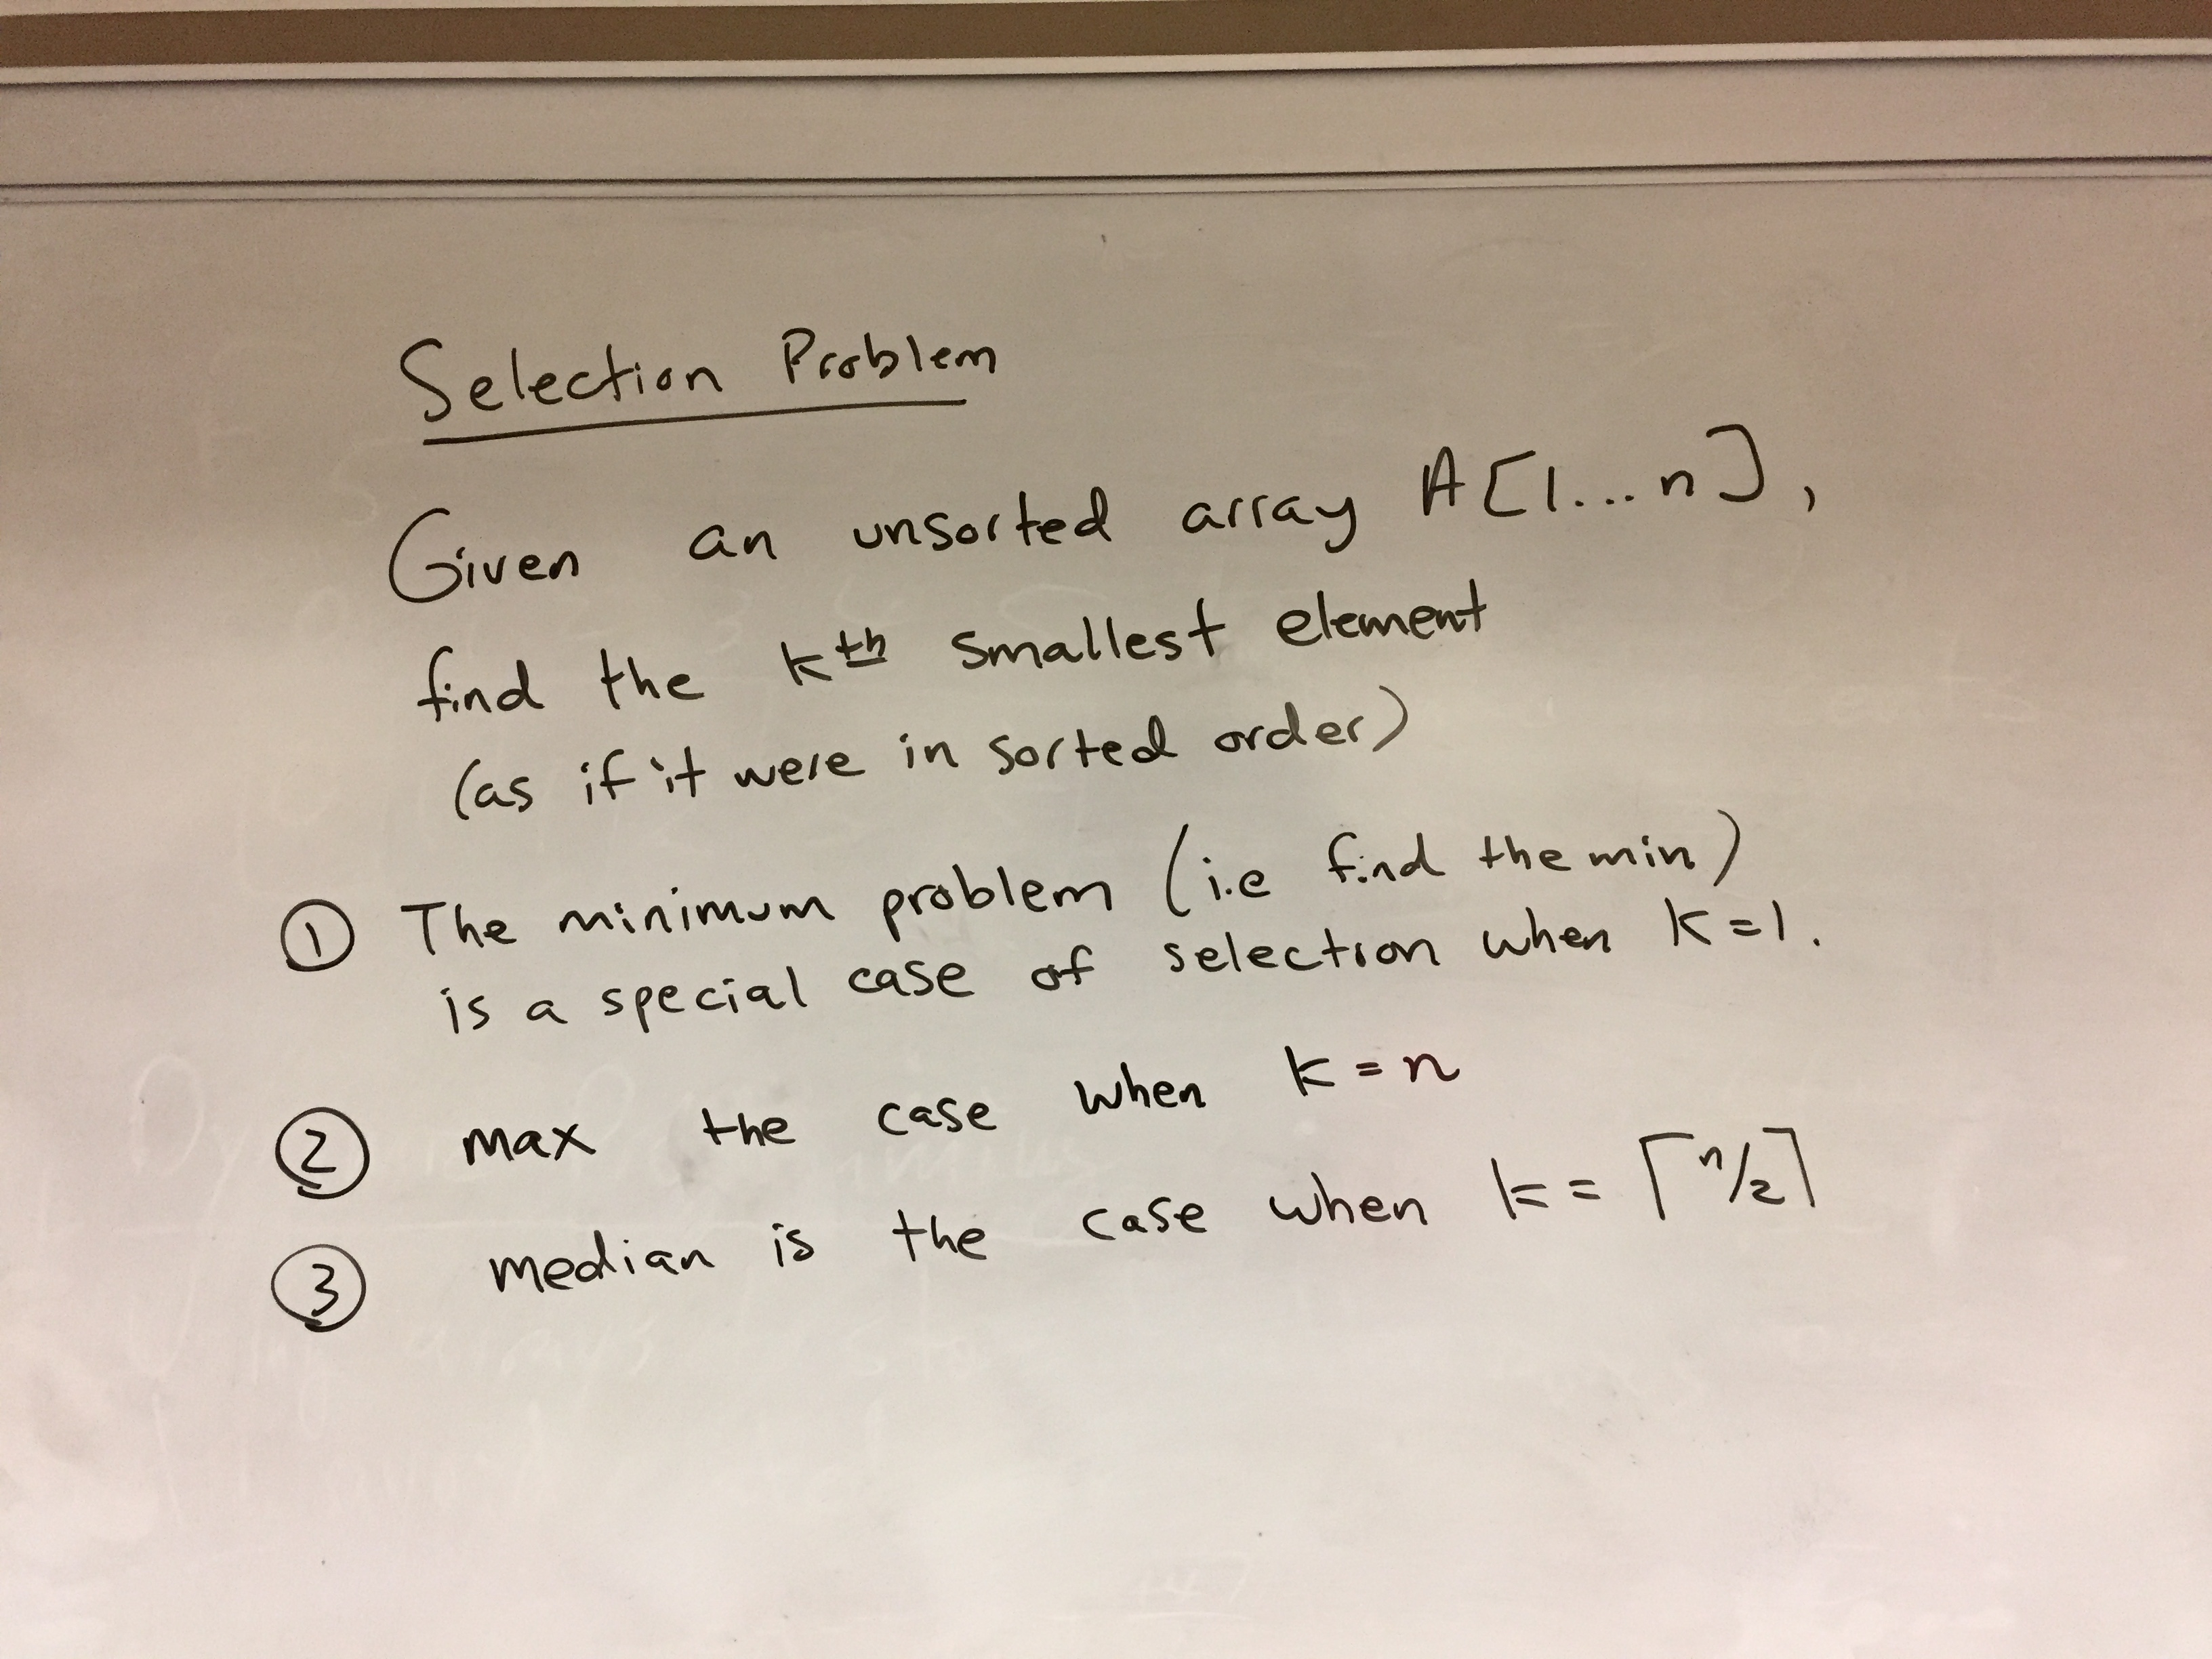 Selection Problem
Given an unsorted array A[1...n],
find the kth smallest element
(as if it were in sorted order)
① The minimum problem (i.e find the min)
is a special case of selection when k=1.
② max the case when k=n
③ median is the case when k=⌈n/2⌉